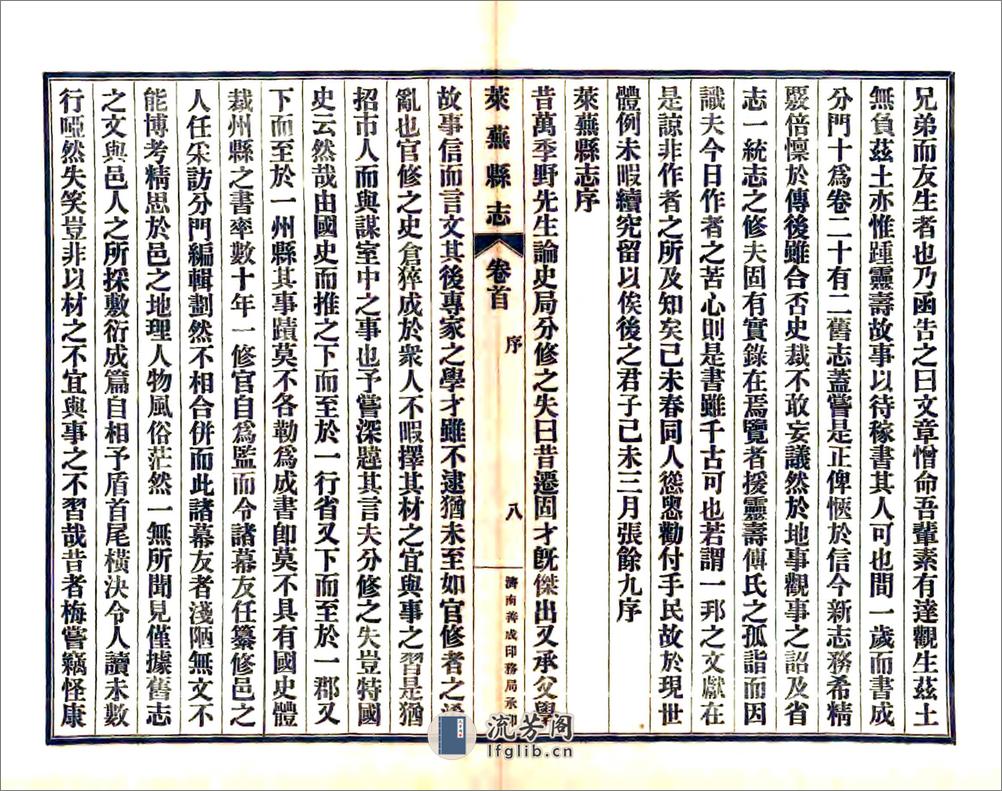 兄弟而友生者也乃函告之曰文章憎命吾輩素有達觀生茲土
無負茲土亦惟踵靈壽故事以待稼書其人可也間一歲而書成
分門十爲卷二十有二舊志蓋嘗是正俾愜於信今新志務希精
覈倍懍於傳後雖合否史裁不敢妄議然於地事觀事之詔及省
志一統志之修夫固有實錄在焉覽者援靈壽傅氏之孤詣而因
識夫今日作者之苦心則是書雖千古可也若謂一邦之文獻在
是諒非作者之所及知矣己未春同人慫恿勸付手民故於現世
體例未暇續究留以俟後之君子己未三月張餘九序
萊蕪縣志序
昔萬季野先生論史局分修之失曰昔遷固才旣傑出又承父學
萊蕪縣志 卷首 序 八 濟南善成印務局承印
故事信而言文其後專家之學才雖不逮猶未至如官修者之
亂也官修之史倉猝成於衆人不暇擇其材之宜與事之習是猶
招市人而與謀室中之事也予嘗深韙其言夫分修之失豈特國
史云然哉由國史而推之下而至於一行省又下而至於一郡又
下而至於一州縣其事蹟莫不各勒爲成書卽莫不具有國史體
裁州縣之書率數十年一修官自爲監而令諸幕友任纂修邑之
人任采訪分門編輯劃然不相合併而此諸幕友者淺陋無文不
能博考精思於邑之地理人物風俗茫然一無所聞見僅據舊志
之文與邑人之所採敷衍成篇自相予盾首尾橫決令人讀未數
行啞然失笑豈非以材之不宜與事之不習哉昔者梅嘗竊怪康
流芳閣
lfglib.cn